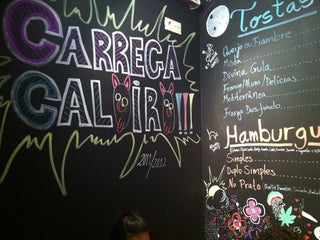 CARREGA
CALOIRO!!!
2011/2012
Tostas
Queijo ou Fiambre
Mista
Divina Gula
Frango/Atum/Delícias
Mediterrânea
Frango Desfiado
Hamburgu
Simples
Duplo Simples
No Prato